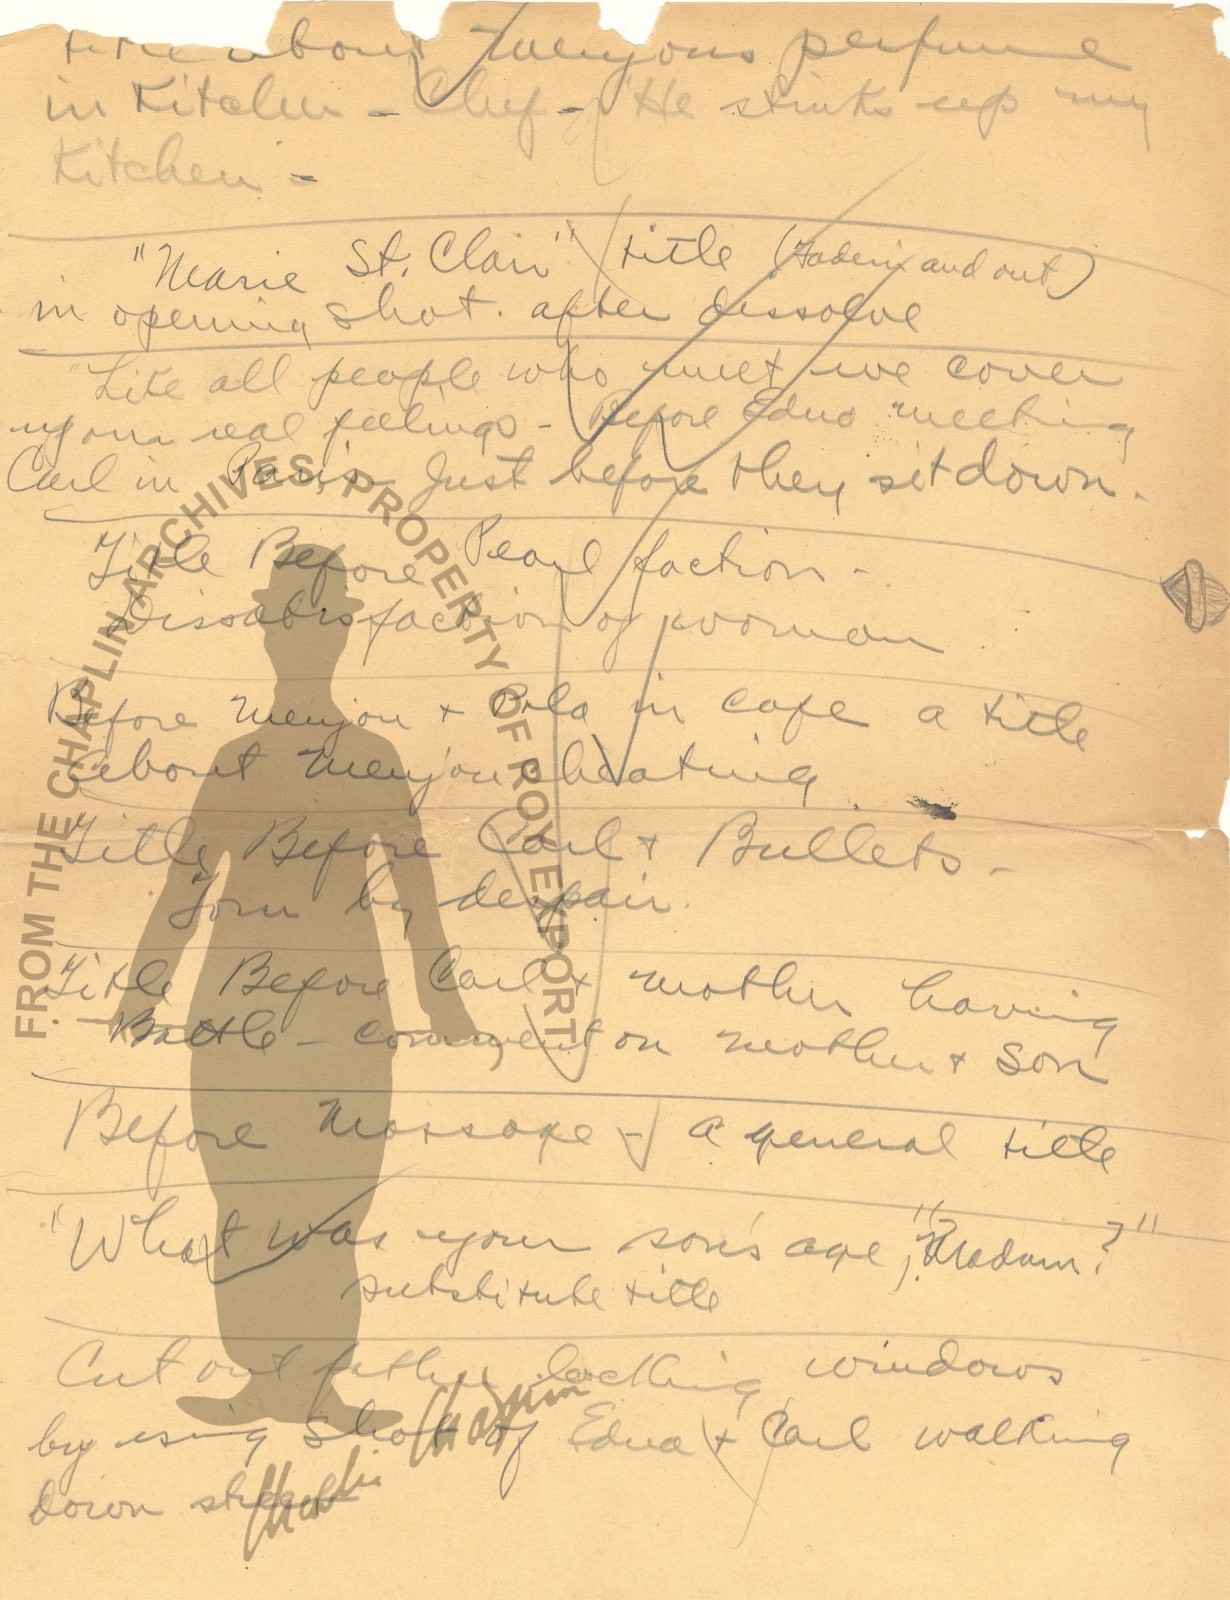 title about Menjous perfume
in Kitchen - Chef - "He stinks up my
Kitchen -
"Marie St. Clair" title (Fade in and out)
in opening shot. after dissolve
"Like all people who meet we cover
our real feelings - Before Edna meeting
Carl in Paris. Just before they sit down.
Title Before Pearl faction -
Dissatisfaction of woman
Before Menjou + Pola in cafe a title
about Menjou cheating
Title Before Carl + Bullets -
Torn by despair.
Title Before Carl + mother having
Battle - comment on mother + son
Before Massage - a general title
"What was your son's age, "Madam?"
substitute title
Cut out father locking windows
by using shot of Edna + Carl walking
down street
FROM THE CHAPLIN ARCHIVES, PROPERTY OF ROY EXPORT
Charlie Chaplin